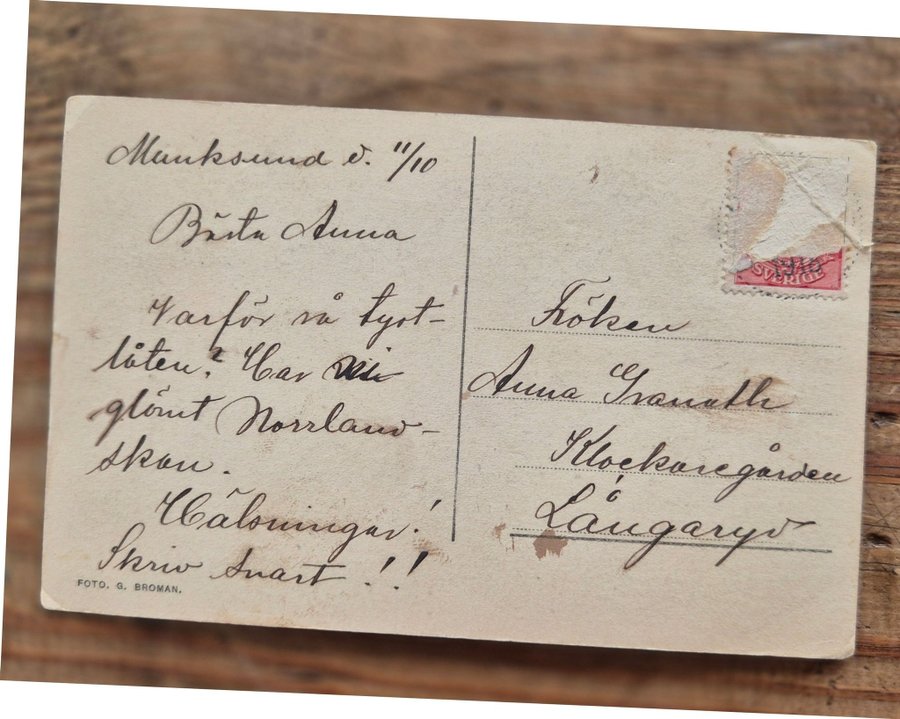 Munksund d. 11/10
Bästa Anna
Varför så tyst-
låten? Har ni
glömt Norrland-
skan.
Hälsningar!
Skriv snart!!
FOTO. G. BROMAN.
SVERIGE
Fröken
Anna Granath
Klockaregården
Långaryd